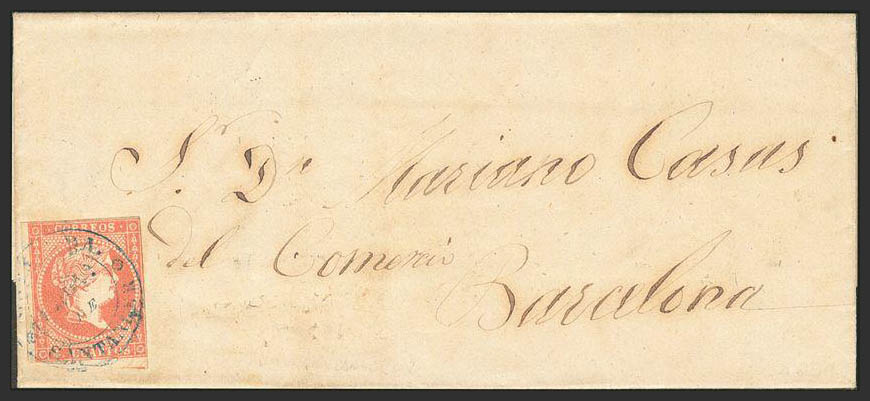 Sr. Dn. Mariano Casas
del Comercio
Barcelona
CORREOS
BA.